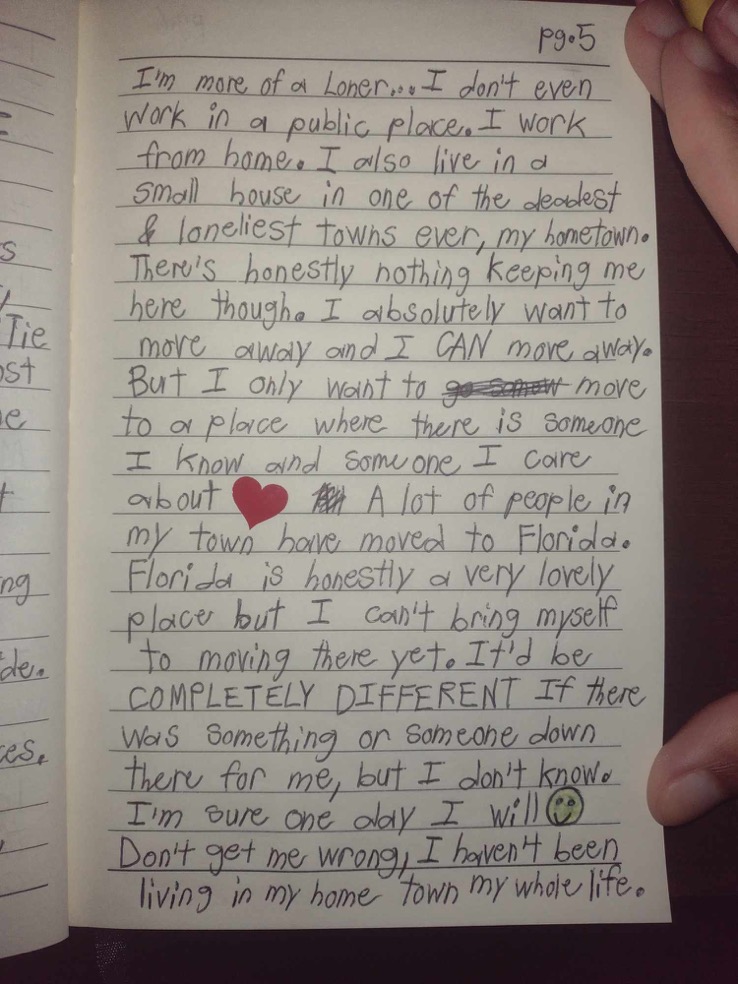 pg.5
I'm more of a Loner... I don't even
work in a public place. I work
from home. I also live in a
small house in one of the deadest
& loneliest towns ever, my hometown.
There's honestly nothing keeping me
here though. I absolutely want to
move away and I CAN move away.
But I only want to move
to a place where there is someone
I know and someone I care
about ❤ A lot of people in
my town have moved to Florida.
Florida is honestly a very lovely
place but I can't bring myself
to moving there yet. It'd be
COMPLETELY DIFFERENT If there
was something or someone down
there for me, but I don't know.
I'm sure one day I will ☺
Don't get me wrong, I haven't been
living in my home town my whole life.